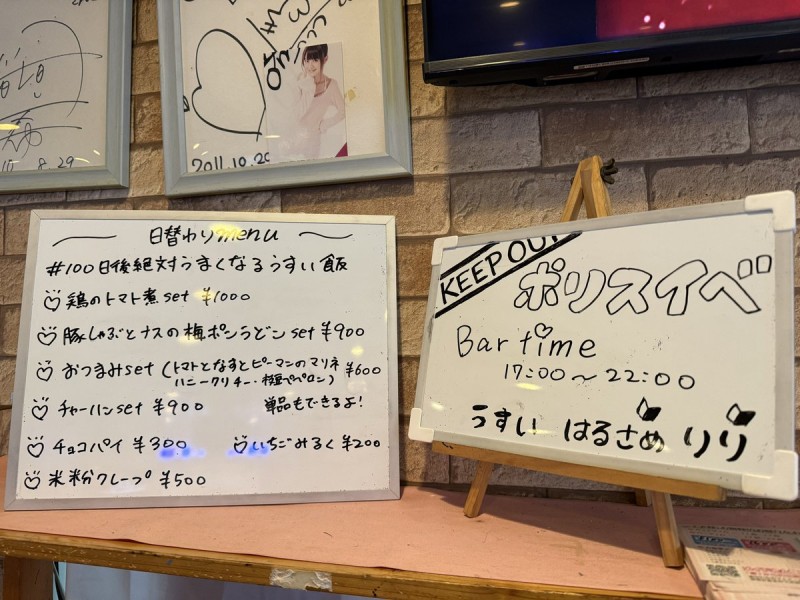 8.29
2011.10.29
日替わりmenu
#100日後絶対うまくなるうすい飯
鶏のトマト煮set ¥1000
豚しゃぶとナスの梅ポンうどん set ¥900
おつまみset (トマトとなすとピーマンのマリネ ¥600
ハニークリチー・枝豆ペペロン)
チャーハンset ¥900 単品もできるよ!
チョコパイ ¥300 いちごみるく ¥200
米粉クレープ ¥500
KEEP OUT
ポリスイベ
Bar time
17:00～22:00
うすい はるさめ りり